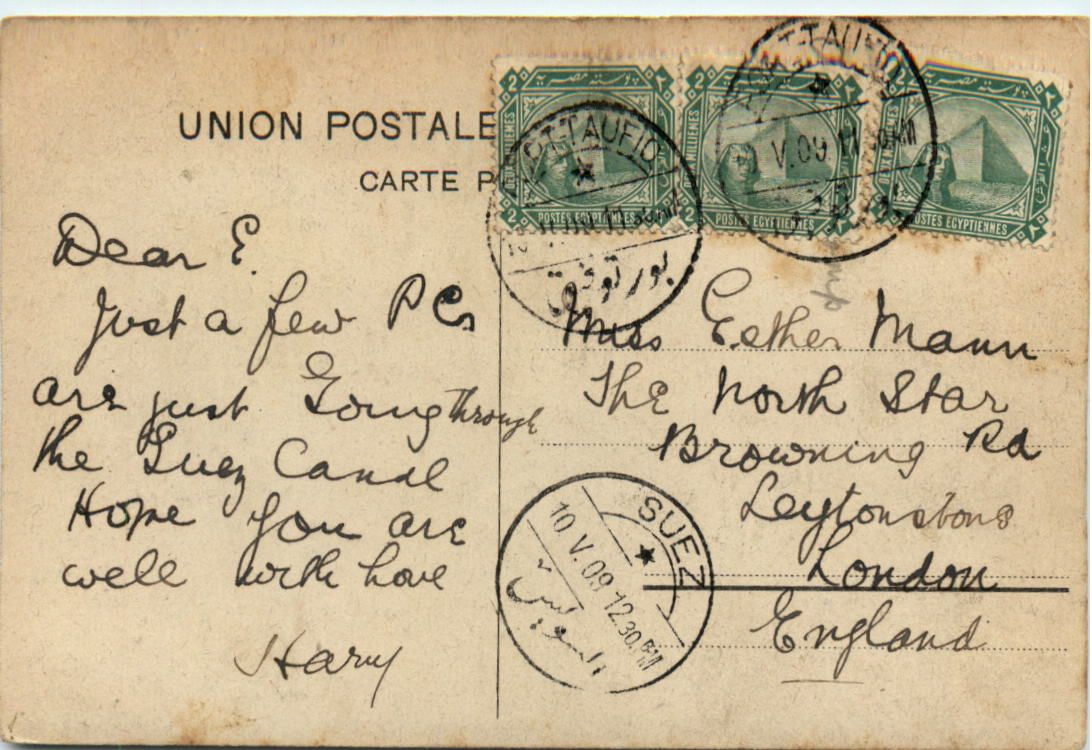 UNION POSTALE
CARTE P
Dear E.
Just a few P Cs
are just Going through
the Suez Canal
Hope you are
well with love
Harry
PORT-TAUFIQ
بور توفيق
PORT-TAUFIQ
V.09 11
2 MILLIEMES 2
بوستة مصرية
POSTES EGYPTIENNES
POSTES EGYPTIENNES
POSTES EGYPTIENNES
Miss Esther Mann
The North Star
Browning Rd
Leytonstone
London
England
SUEZ
10 V.09 12.30.PM
السويس